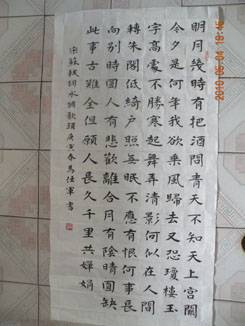 明月幾時有把酒問青天不知天上宮闕
今夕是何年我欲乘風歸去又恐瓊樓玉
宇高處不勝寒起舞弄清影何似在人間
轉朱閣低綺戶照無眠不應有恨何事長
向別時圓人有悲歡離合月有陰晴圓缺
此事古難全但願人長久千里共嬋娟
宋蘇軾詞水調歌頭庚寅春馬任軍書
2010.05.04 19:45